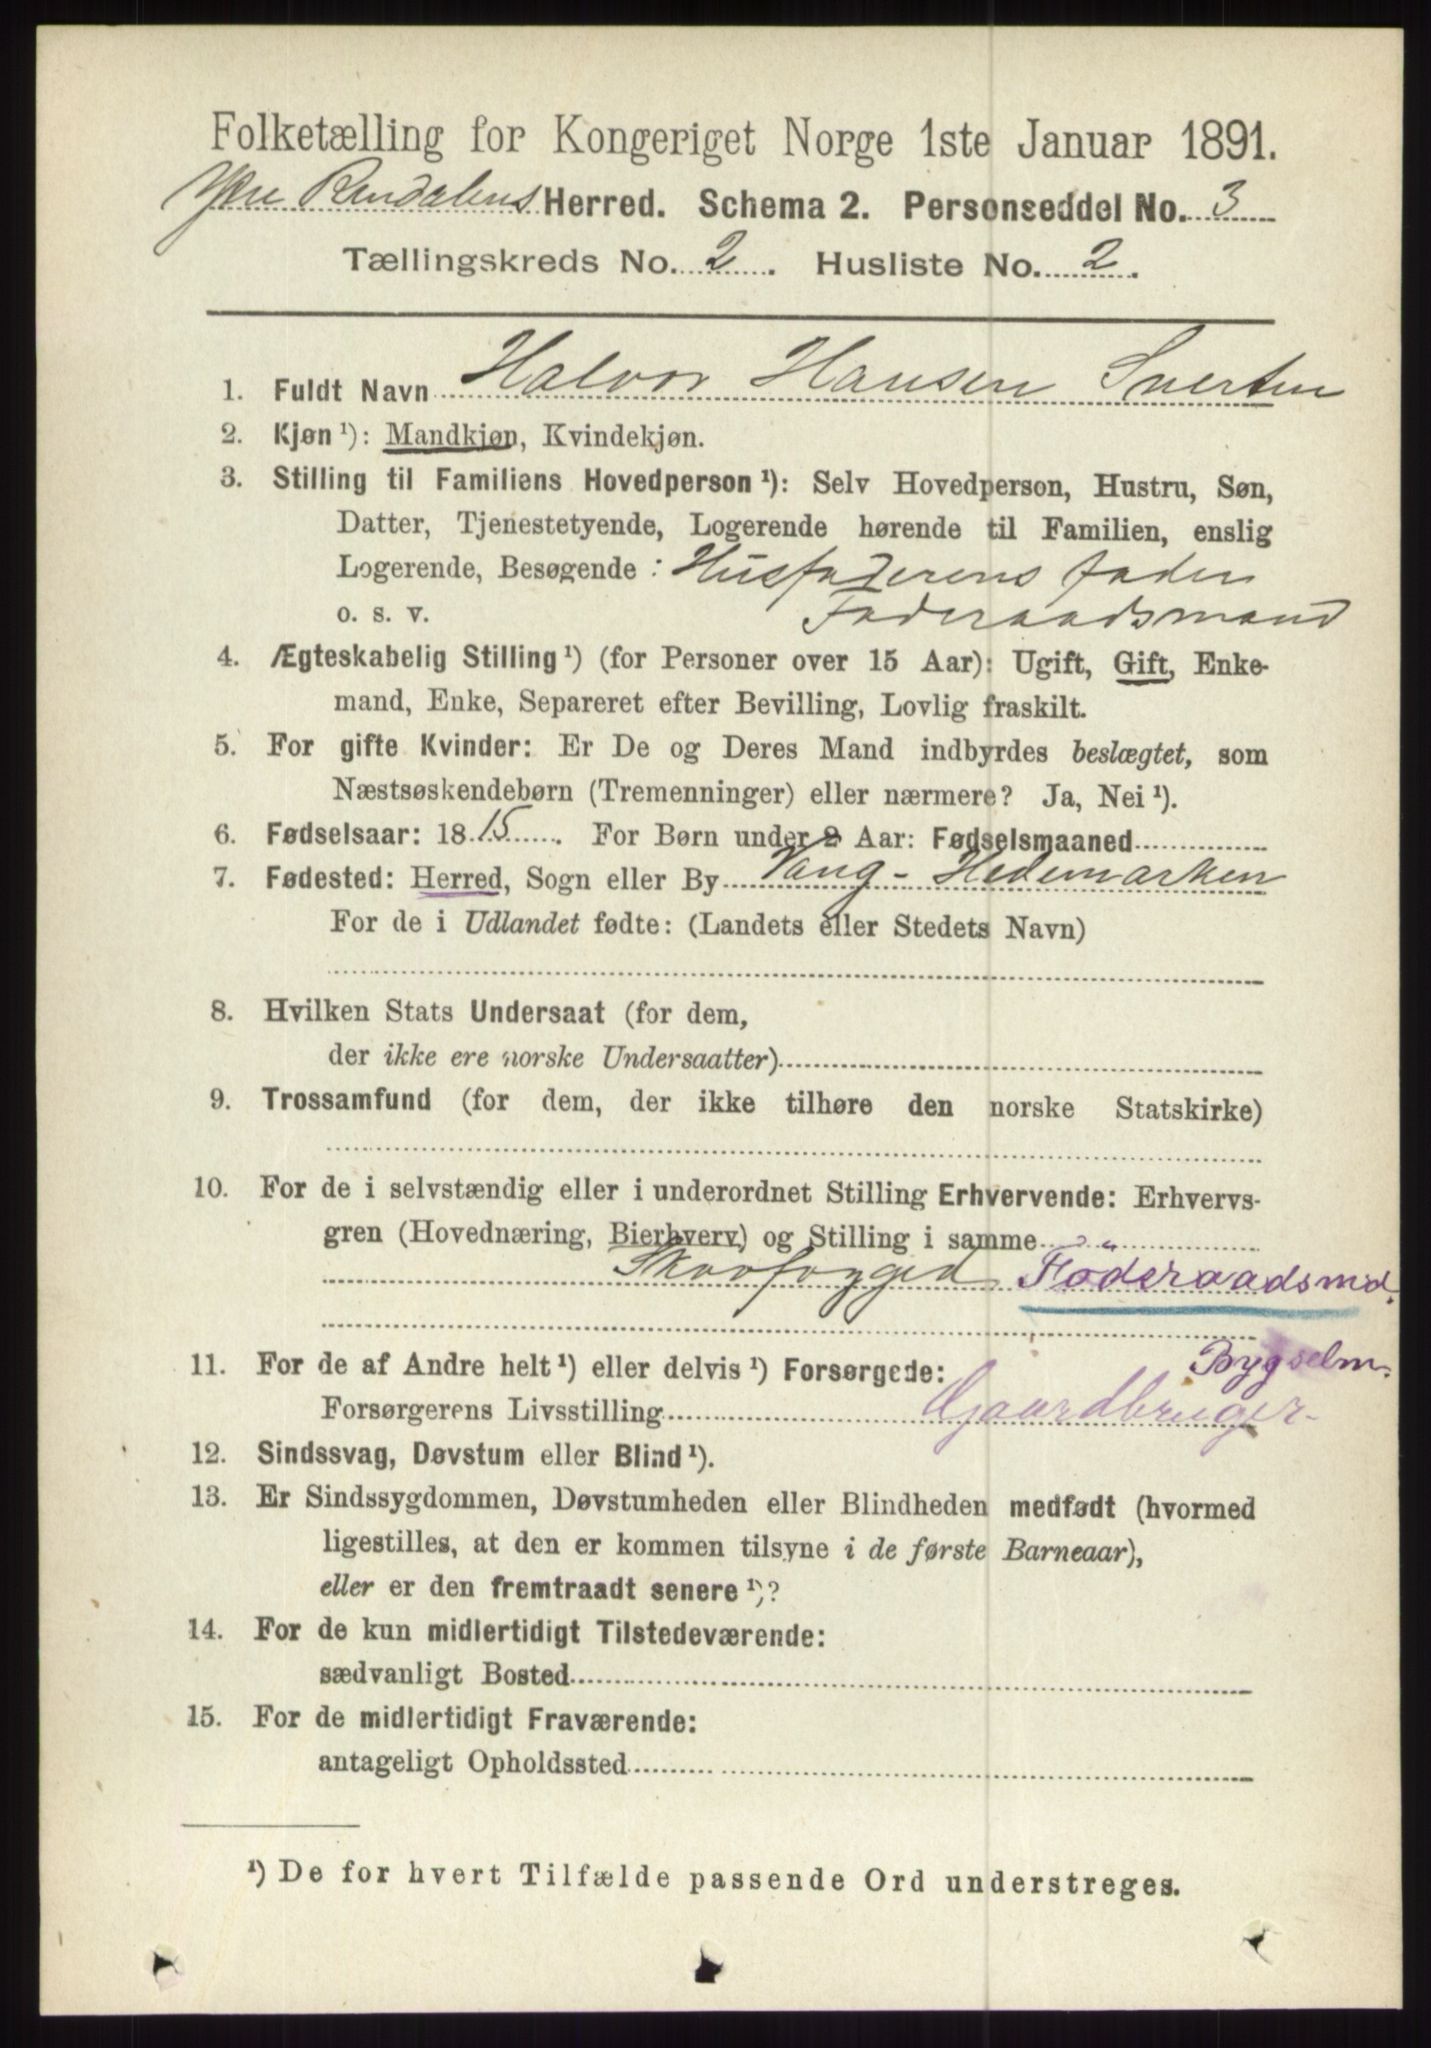 Folketælling for Kongeriget Norge 1ste Januar 1891.
Ytre Rendalens Herred. Schema 2. Personseddel No. 3
Tællingskreds No. 2. Husliste No. 2.
1. Fuldt Navn Halvor Hansen
2. Kjøn¹): Mandkjøn, Kvindekjøn.
3. Stilling til Familiens Hovedperson¹): Selv Hovedperson, Hustru, Søn,
Datter, Tjenestetyende, Logerende hørende til Familien, enslig
Logerende, Besøgende: Husfaderens fader
o. s. v. Føderaadsmand
4. Ægteskabelig Stilling¹) (for Personer over 15 Aar): Ugift, Gift, Enke-
mand, Enke, Separeret efter Bevilling, Lovlig fraskilt.
5. For gifte Kvinder: Er De og Deres Mand indbyrdes beslægtet, som
Næstsøskendebørn (Tremenninger) eller nærmere? Ja, Nei¹).
6. Fødselsaar: 1815. For Børn under 2 Aar: Fødselsmaaned
7. Fødested: Herred, Sogn eller By Vang - Hedemarken
For de i Udlandet fødte: (Landets eller Stedets Navn)
8. Hvilken Stats Undersaat (for dem,
der ikke ere norske Undersaatter)
9. Trossamfund (for dem, der ikke tilhøre den norske Statskirke)
10. For de i selvstændig eller i underordnet Stilling Erhvervende: Erhvervs-
gren (Hovednæring, Bierhverv) og Stilling i samme
Skovfogged Föderaadsmd.
Bygselm.
11. For de af Andre helt¹) eller delvis¹) Forsørgede:
Forsørgerens Livsstilling Gaardbruger
12. Sindssvag, Døvstum eller Blind¹).
13. Er Sindssygdommen, Døvstumheden eller Blindheden medfødt (hvormed
ligestilles, at den er kommen tilsyne i de første Barneaar),
eller er den fremtraadt senere¹)?
14. For de kun midlertidigt Tilstedeværende:
sædvanligt Bosted
15. For de midlertidigt Fraværende:
antageligt Opholdssted
¹) De for hvert Tilfælde passende Ord understreges.